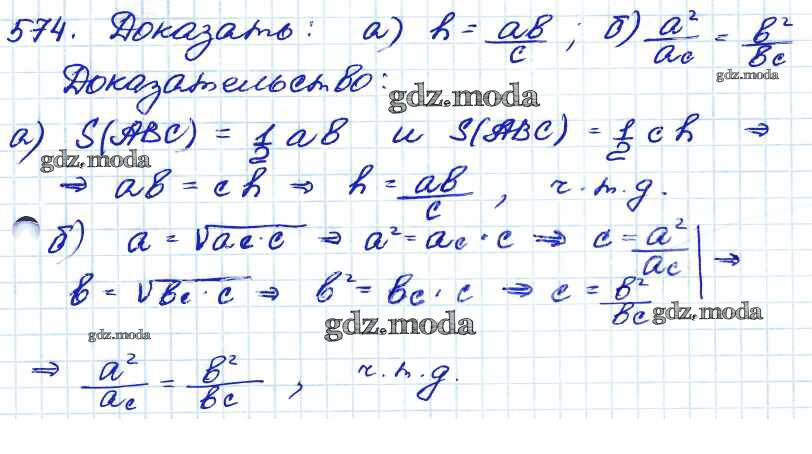 574. Доказать: а) h = ab/c ; б) a²/ac = b²/bc
gdz.moda
Доказательство:
gdz.moda
а) S(ABC) = 1/2 ab и S(ABC) = 1/2 ch ⇒
gdz.moda
⇒ ab = ch ⇒ h = ab/c , ч.т.д.
б) a = √ac·c ⇒ a² = ac·c ⇒ c = a²/ac | ⇒
b = √bc·c ⇒ b² = bc·c ⇒ c = b²/bc
gdz.moda
gdz.moda
gdz.moda
⇒ a²/ac = b²/bc , ч.т.д.